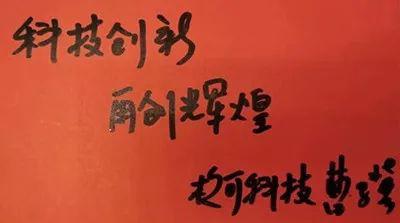 科技创新
再创辉煌
科技 曹